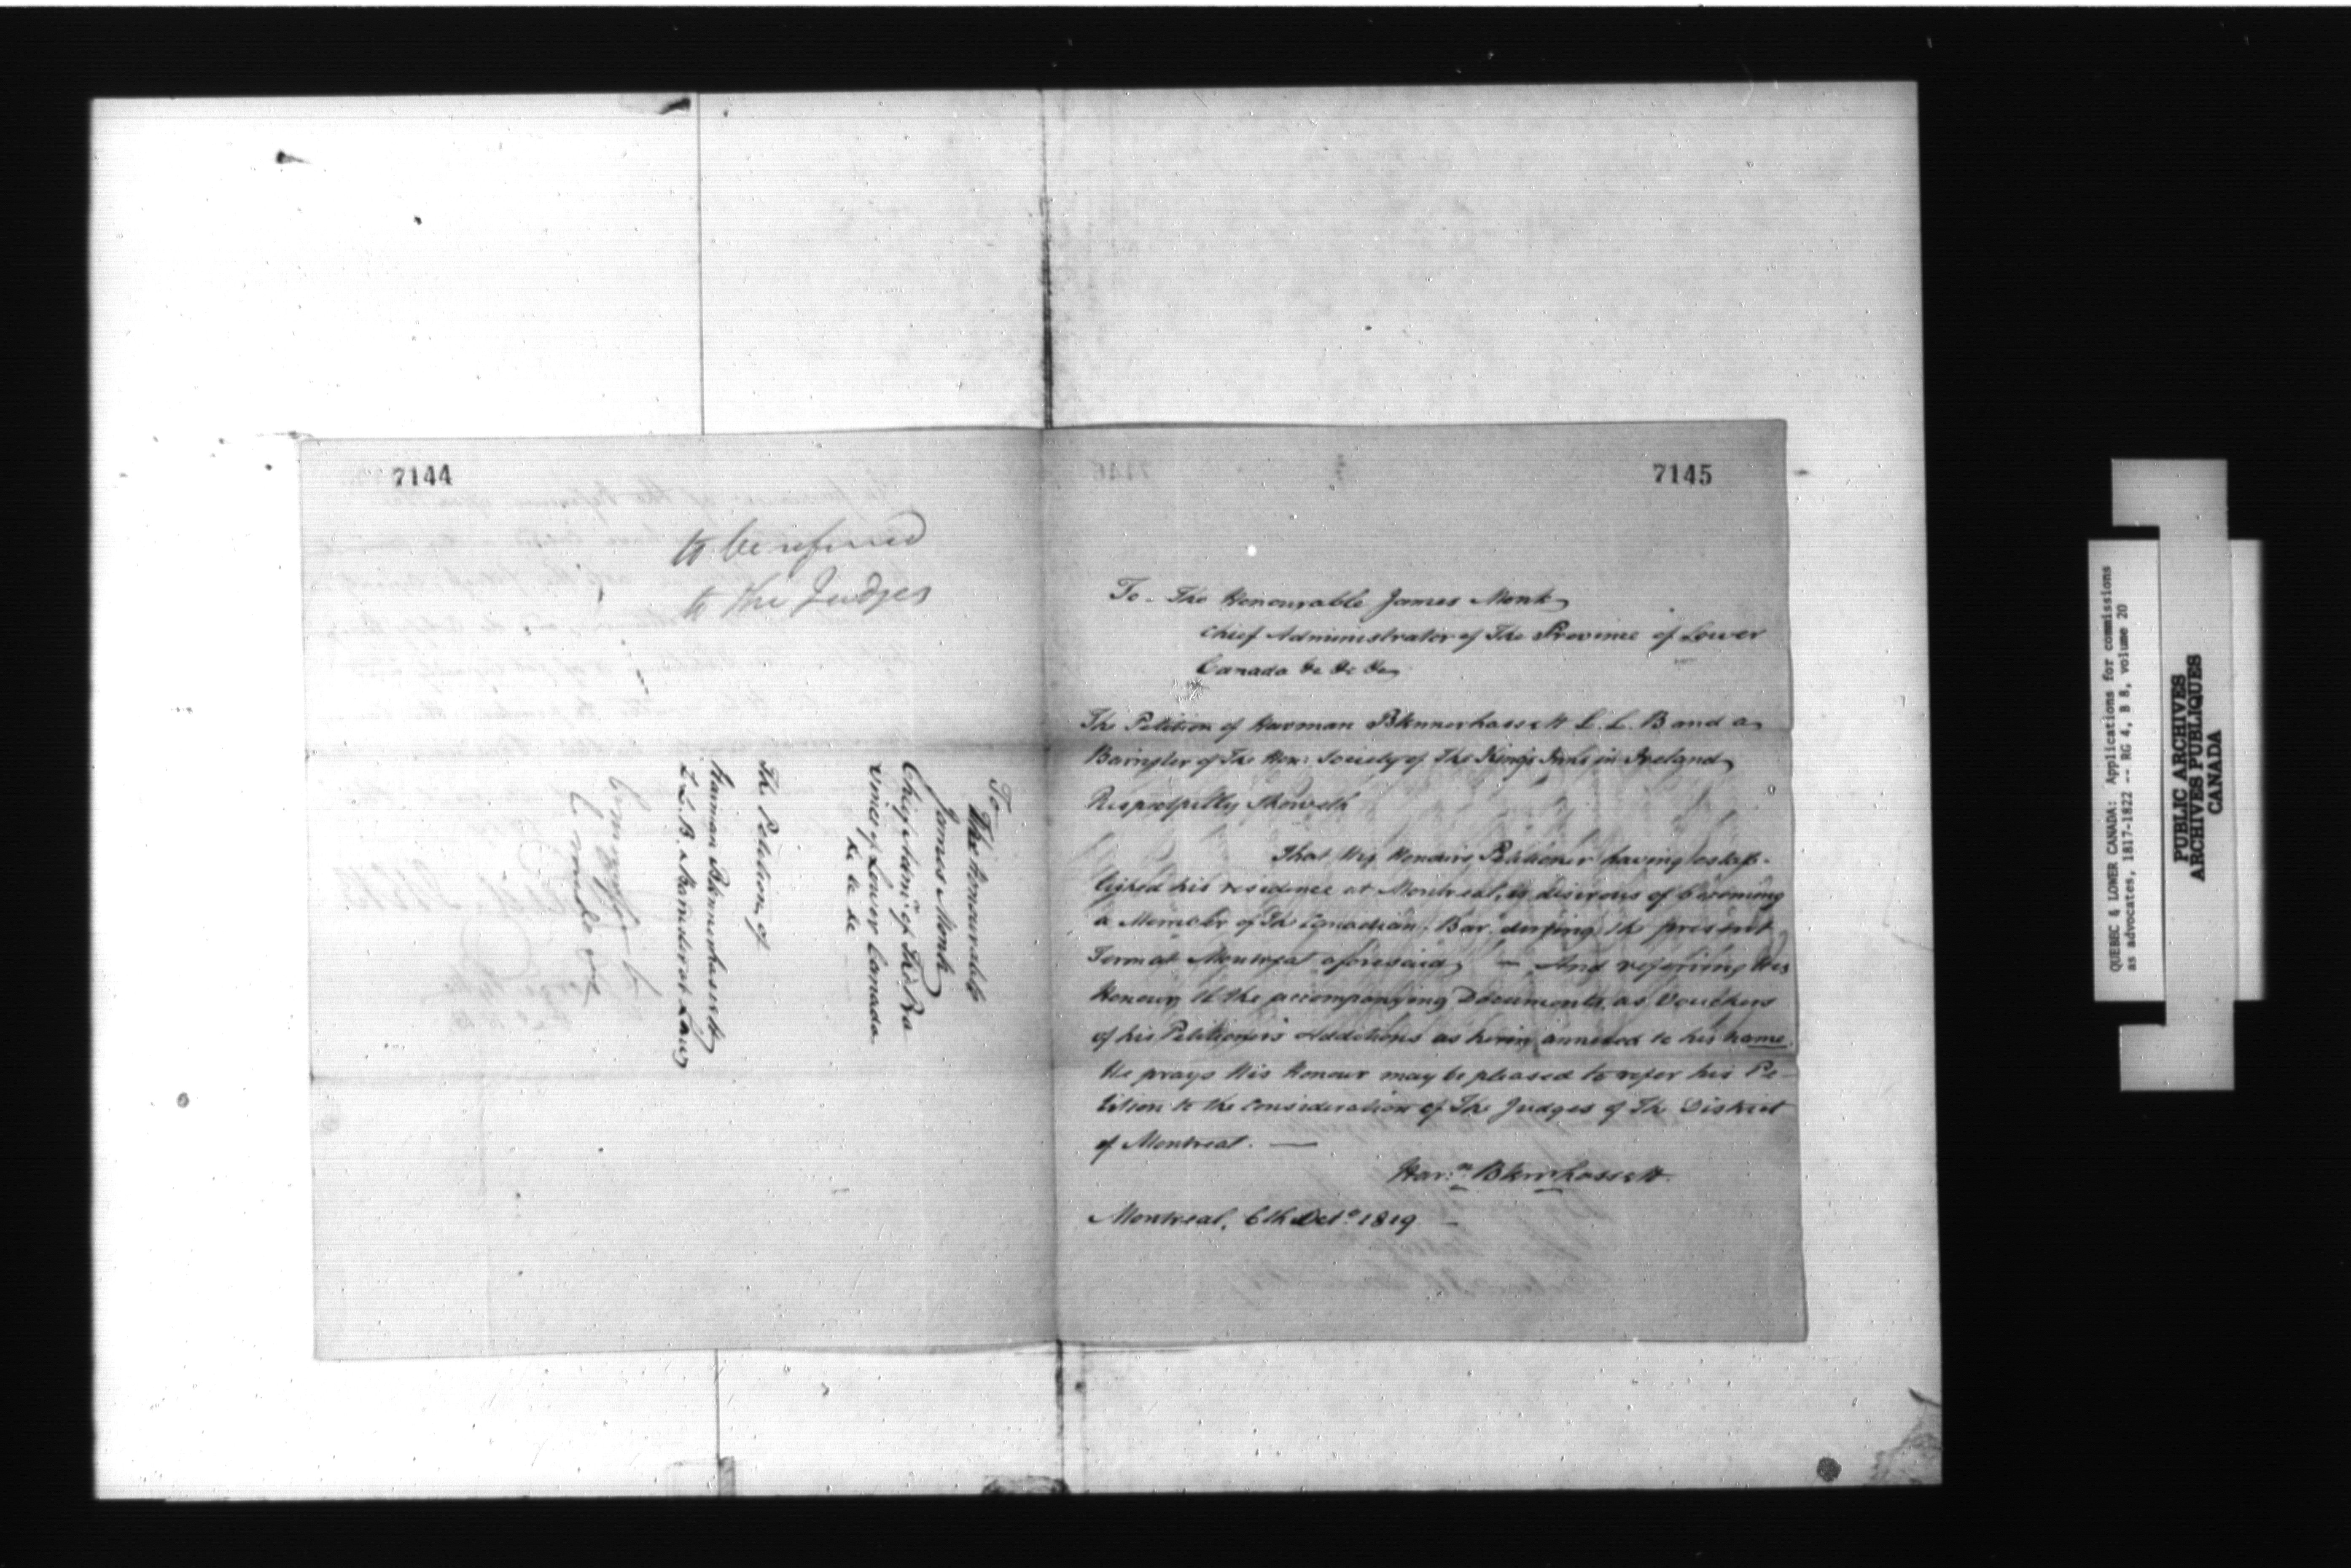 7144
to be referred
to the Judges
To
The Honourable
James Monk
Chief Admin.r of The Pro
vince of Lower Canada
&c &c &c
The Petition of
Harman Blennerhassett
L. L. B. & Barrister at Law
7145
To - The Honourable James Monk
Chief Administrator of The Province of Lower
Canada &c &c &c
The Petition of Harman Blennerhassett L. L. B and a
Barrister of The Hon: Society of The Kings Inns in Ireland
Respectfully Sheweth
That His Honours Petitioner having estab-
lished his residence at Montreal, is desirous of becoming
a Member of The Canadian Bar, during the present
Term at Montreal aforesaid, — And referring His
Honour to the accompanying Documents, as Vouchers
of his Petitioner's Additions as herein annexed to his name.
He prays His Honour may be pleased to refer his Pe-
tition to the consideration of The Judges of The District
of Montreal. —
Har:n Blennhassett
Montreal, 6th Oct.o 1819 —
QUEBEC & LOWER CANADA: Applications for commissions
as advocates, 1817-1822 -- RG 4, B 8, volume 20
PUBLIC ARCHIVES
ARCHIVES PUBLIQUES
CANADA